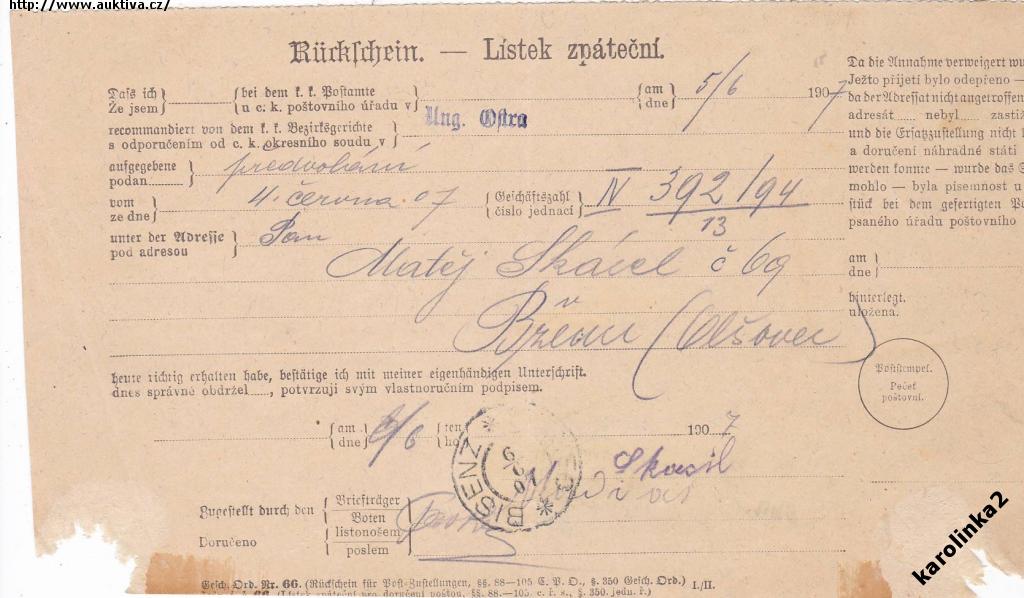 http://www.auktiva.cz/
Rückschein. — Lístek zpáteční.
Dass ich
Že jsem
bei dem k. k. Postamte
u c. k. poštovního úřadu v
am
dne
5/6
1907
recommandiert von dem k. k. Bezirksgerichte
s odporučením od c. k. okresního soudu v
Ung. Ostra
aufgegebene
podan
předvolání
vom
ze dne
4. června 07
Geschäftszahl
číslo jednací
IV 392/94
13
unter der Adresse
pod adresou
Pan
Matěj Skácel č 69
Bzenec (Olšovec)
heute richtig erhalten habe, bestätige ich mit meiner eigenhändigen Unterschrift.
dnes správně obdržel, potvrzuji svým vlastnoručním podpisem.
am
dne
6/6
ten
ho
1907
BISENZ
Skasil
Zugestellt durch den
Doručeno
Briefträger
Boten
listonošem
poslem
Gesch. Ord. Nr. 66. (Rückschein für Post-Zustellungen, §§. 88—105 C. P. O., §. 350 Gesch. Ord.) I./II.
(Lístek zpáteční pro doručení poštou, §§. 88—105. c. ř. s., §. 350. jedn. ř.)
Da die Annahme verweigert
Ježto přijetí bylo odepřeno —
da der Adressat nicht angetroffen
adresát nebyl zastiž
und die Ersatzzustellung nicht
a doručení náhradné státi
werden konnte — wurde das
mohlo — byla písemnost u
stück bei dem gefertigten
psaného úřadu poštovního
am
dne
hinterlegt.
uložena.
Poststempel.
Pečeť
poštovní.
karolinka2